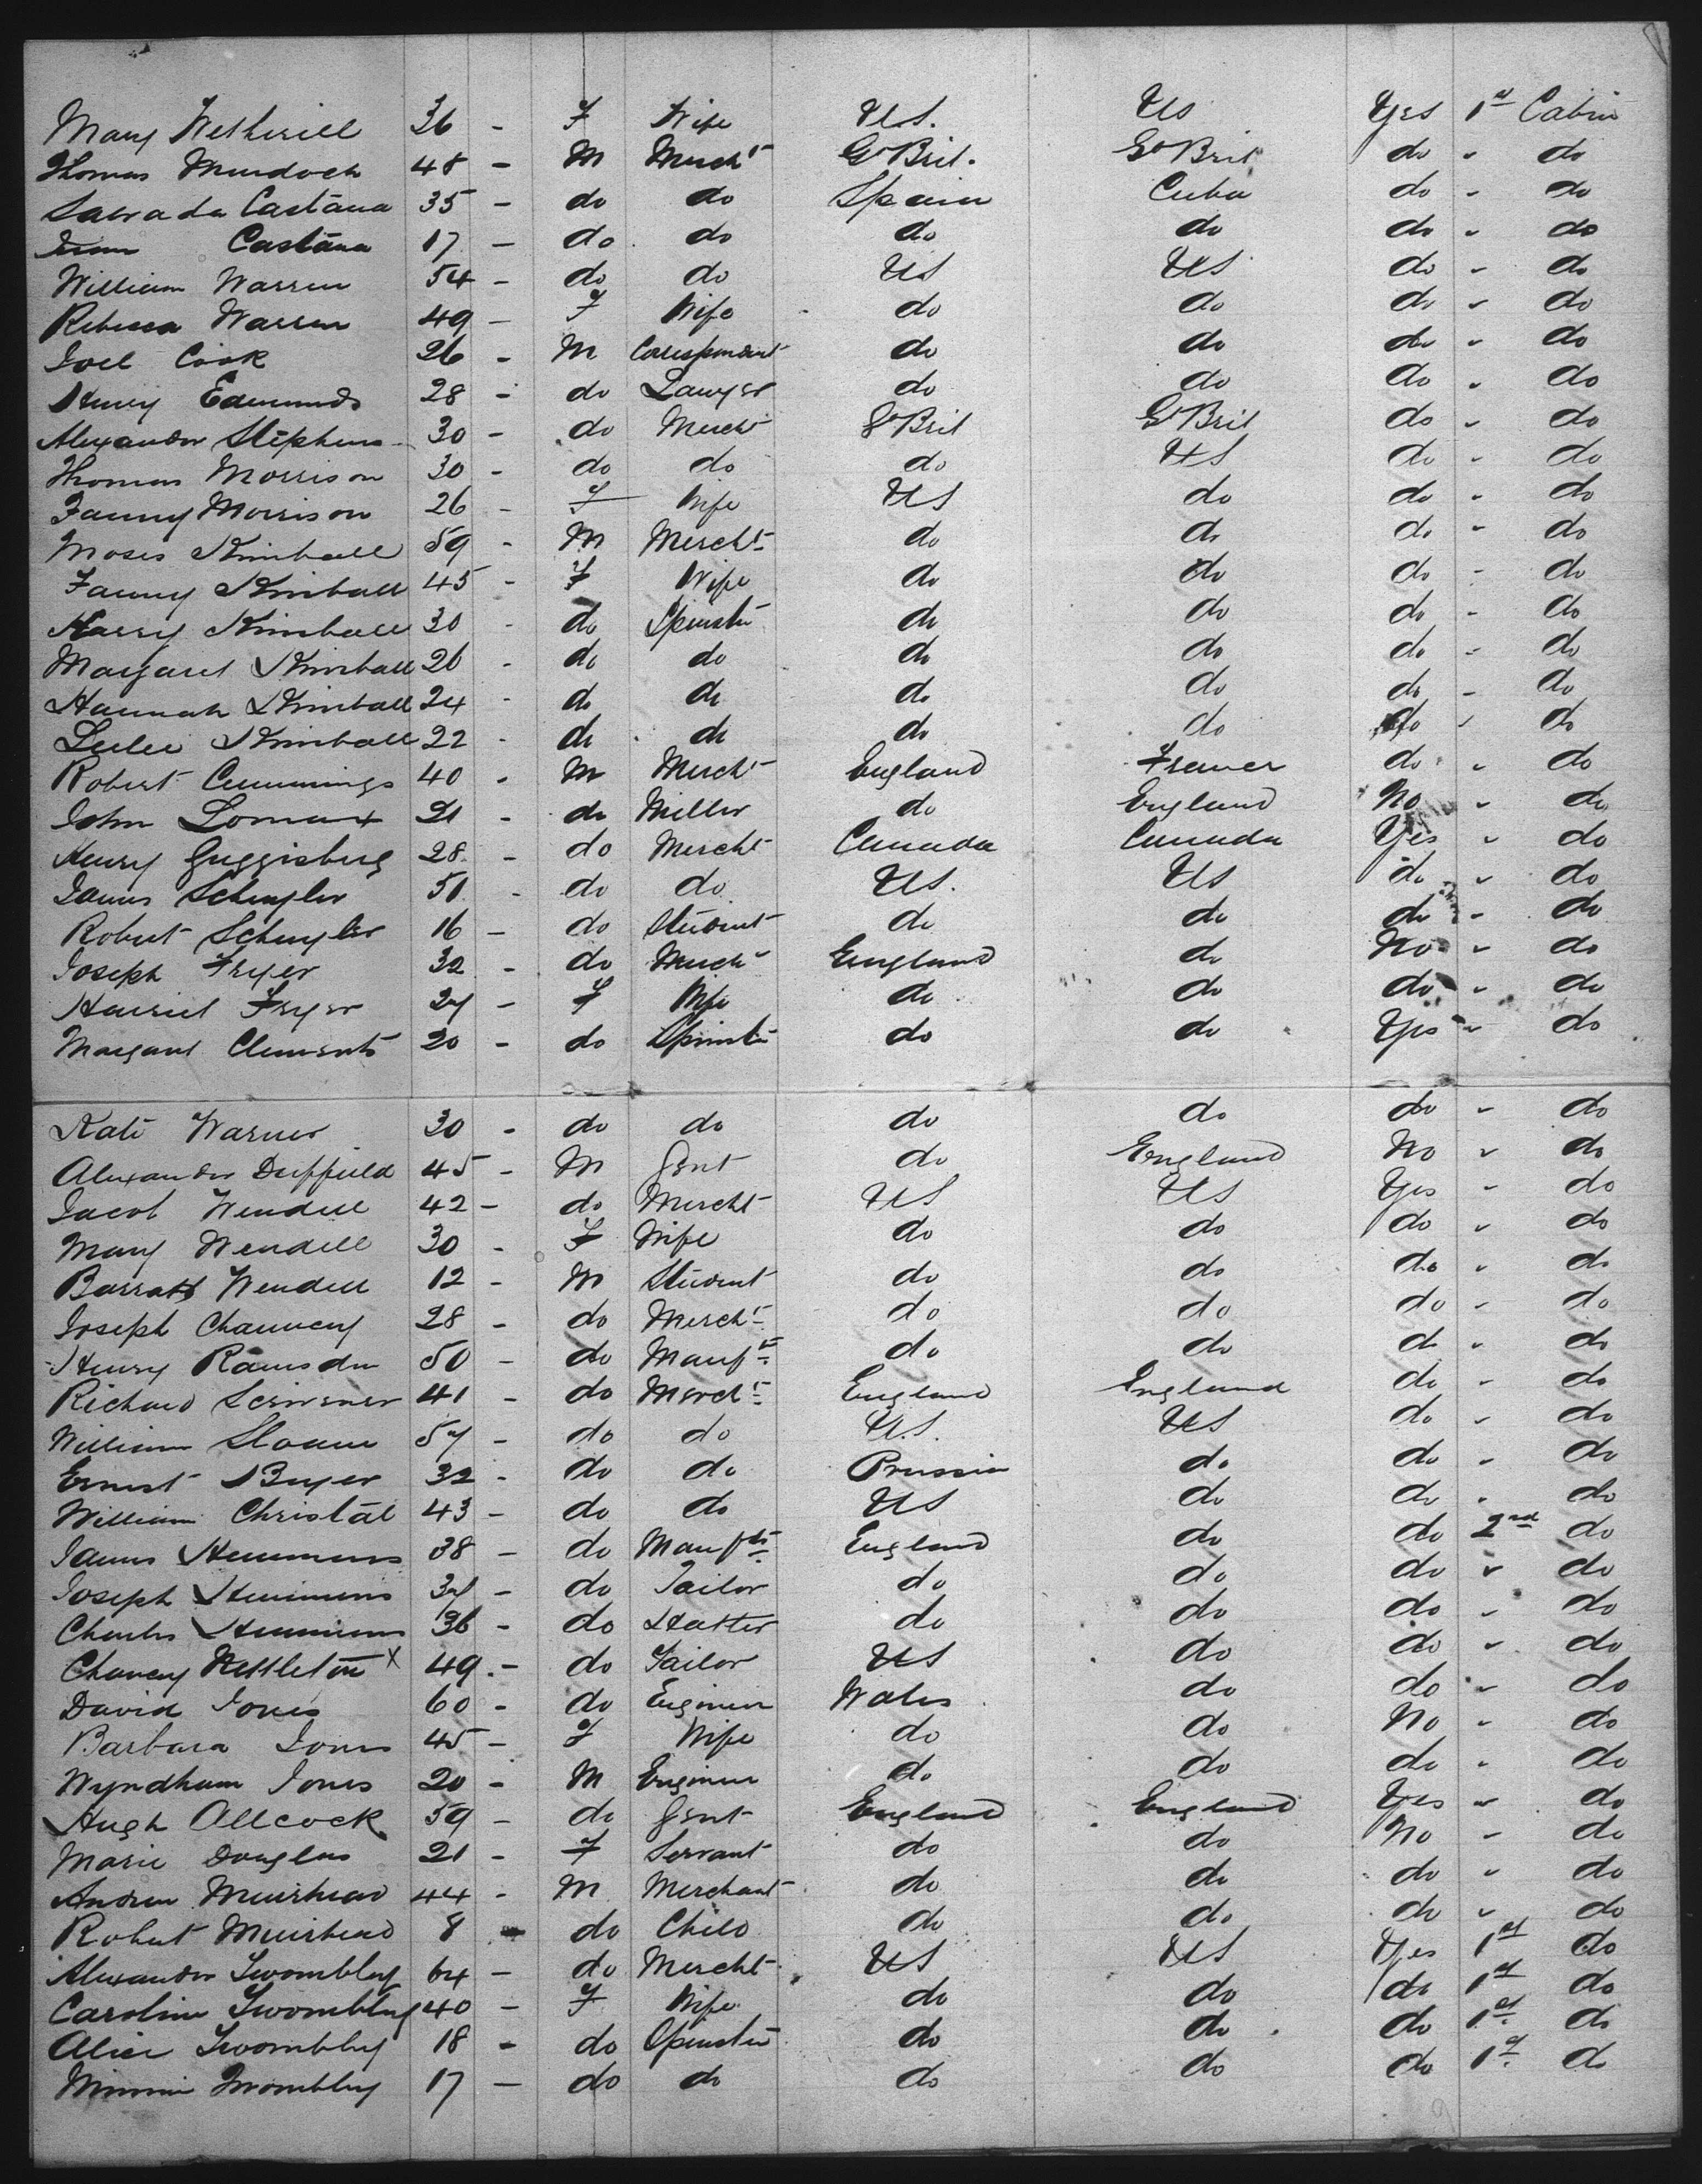 Mary Wetherill 36 - F Wife U.S. US Yes 1st Cabin
Thomas Murdoch 48 - M Mercht Gt Brit. Gt Brit do " do
Castãna 35 - do do Spain Cuba do " do
Castãna 17 - do do do do do " do
William Warren 54 - do do US US do " do
Rebecca Warren 49 - F Wife do do do " do
Joel Cook 26 - M Correspondent do do do " do
Henry Edmunds 28 - do Lawyer do do do " do
Alexander Stephens 30 - do Mercht Gt Brit Gt Brit do " do
Thomas Morrison 30 - do do do US do " do
Fanny Morrison 26 - F Wife US do do " do
Moses Kimball 59 - M Mercht do do do " do
Fanny Kimball 45 - F Wife do do do " do
Harry Kimball 30 - do Spinster do do do " do
Margaret Kimball 26 - do do do do do " do
Hannah Kimball 24 - do do do do do " do
Kimball 22 - do do do do do " do
Robert Cummings 40 - M Mercht England France do " do
John Lomax 21 - do Miller do England No " do
Henry Guggisberg 28 - do Mercht Canada Canada Yes " do
James Schuyler 51 - do do US. US do " do
Robert Schuyler 16 - do Student do do do " do
Joseph Fryer 32 - do Mercht England do No " do
Harriet Fryer 27 - F Wife do do do " do
Margaret Clements 20 - do Spinster do do Yes " do
Kate Warner 30 - do do do do do " do
Alexander Duffield 45 - M Gent do England No " do
Jacob Wendell 42 - do Mercht US US Yes " do
Mary Wendell 30 - F Wife do do do " do
Barratt Wendell 12 - M Student do do do " do
Joseph Chauncey 28 - do Mercht do do do " do
Henry Ramsden 50 - do Manufr do do do " do
Richard Scrivener 41 - do Mercht England England do " do
William Sloane 57 - do do U.S. US do " do
Ernest Buyer 32 - do do Prussia do do " do
William Christal 43 - do do US do do " do
James Hemmens 38 - do Manufr England do do 2nd do
Joseph Hemmens 37 - do Tailor do do do " do
Charles Hemmens 36 - do Hatter do do do " do
Chancey Nettleton x 49 - do Tailor US do do " do
David Jones 60 - do Engineer Wales do do " do
Barbara Jones 45 - F Wife do do No " do
Wyndham Jones 20 - M Engineer do do do " do
Hugh Allcock 59 - do Gent England England Yes " do
Marie Douglas 21 - F Servant do do No " do
Andrew Muirhead 44 - M Merchant do do do " do
Robert Muirhead 8 - do Child do do do " do
Alexander Twombley 64 - do Mercht US US Yes 1st do
Caroline Twombley 40 - F Wife do do do 1st do
Alice Twombley 18 - do Spinster do do do 1st do
Minnie Twombley 17 - do do do do do 1st do